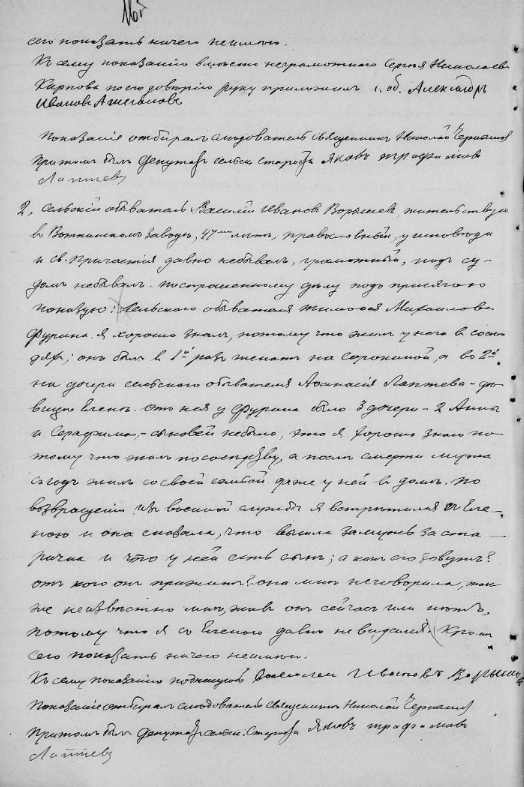 сего показать ничего не имею.
Къ сему показанію вместо неграмотнаго Сергѣя Николаева
Карпова по его довѣрію руку приложилъ с. об. Александръ
Ивановъ
Показанія отбиралъ слѣдователь Священникъ Николай
При томъ былъ Депутатъ сельск. староста Яковъ Трофимовъ
Лаптевъ
2, Сельскій обыватель Василій Ивановъ жительствую
въ Воткинскомъ заводѣ, 47 лѣтъ, православный, у исповѣди
и Св. Причастія давно не бывалъ, грамотный, подъ су-
домъ не бывалъ. По спрошенному дѣлу подъ присягою
показую: Сельскаго обывателя Михайлова
Фурина я хорошо зналъ, потому что жилъ у него въ сосѣ-
дяхъ; онъ былъ въ 1й разъ женатъ на Сорокиной, а во 2й
на дочери сельскаго обывателя Аѳанасія Лаптева - дѣ-
вицѣ Еленѣ. Отъ нея у Фурина было 3 дочери - 2 Анны
и Серафима, - сыновей не было, это я хорошо знаю по-
тому что жилъ по сосѣдству, а послѣ смерти мужа
годъ жилъ со своей семьей даже у ней въ домѣ. По
возвращеніи изъ военной службы я встрѣтился съ Еле-
ною и она сказала, что вышла замужъ за ста-
ричка и что у ней есть сынъ; а какъ его зовутъ?
отъ кого онъ прижитъ? она мнѣ не говорила, так-
же неизвѣстно мнѣ, живъ онъ сейчасъ или нѣтъ,
потому что я съ Еленою давно не видался. Кромѣ
сего показать ничего не имею.
Къ сему показанію подпишусь Василій Ивановъ
Показаніе отбиралъ слѣдователь Священникъ Николай
При томъ былъ Депутатъ сельск. Староста Яковъ Трофимовъ
Лаптевъ